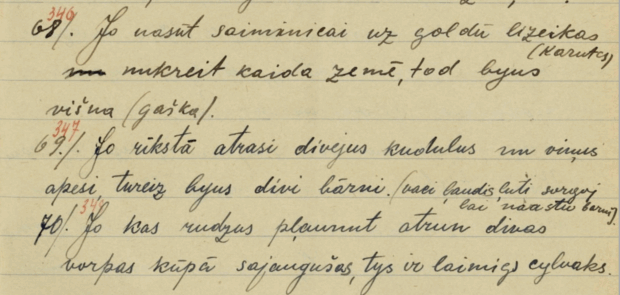 346
68/. Jo nasūt saiminicai uz goldū lizeikas
(Karuts)
nu nukreit kaida zemē, tod byus
višna (gaška).
347
69./. Jo rīkstā atrasi divejus kudulus un viņus
apesi tureiz byus divi bārni. (vaci ļaudis ļūti sorgoj
lai naastu bārni).
70/. Jo kas rudzus pļaunut atrun divas
vorpas kūpā sajaugušas, tys ir laimigs cylvaks.